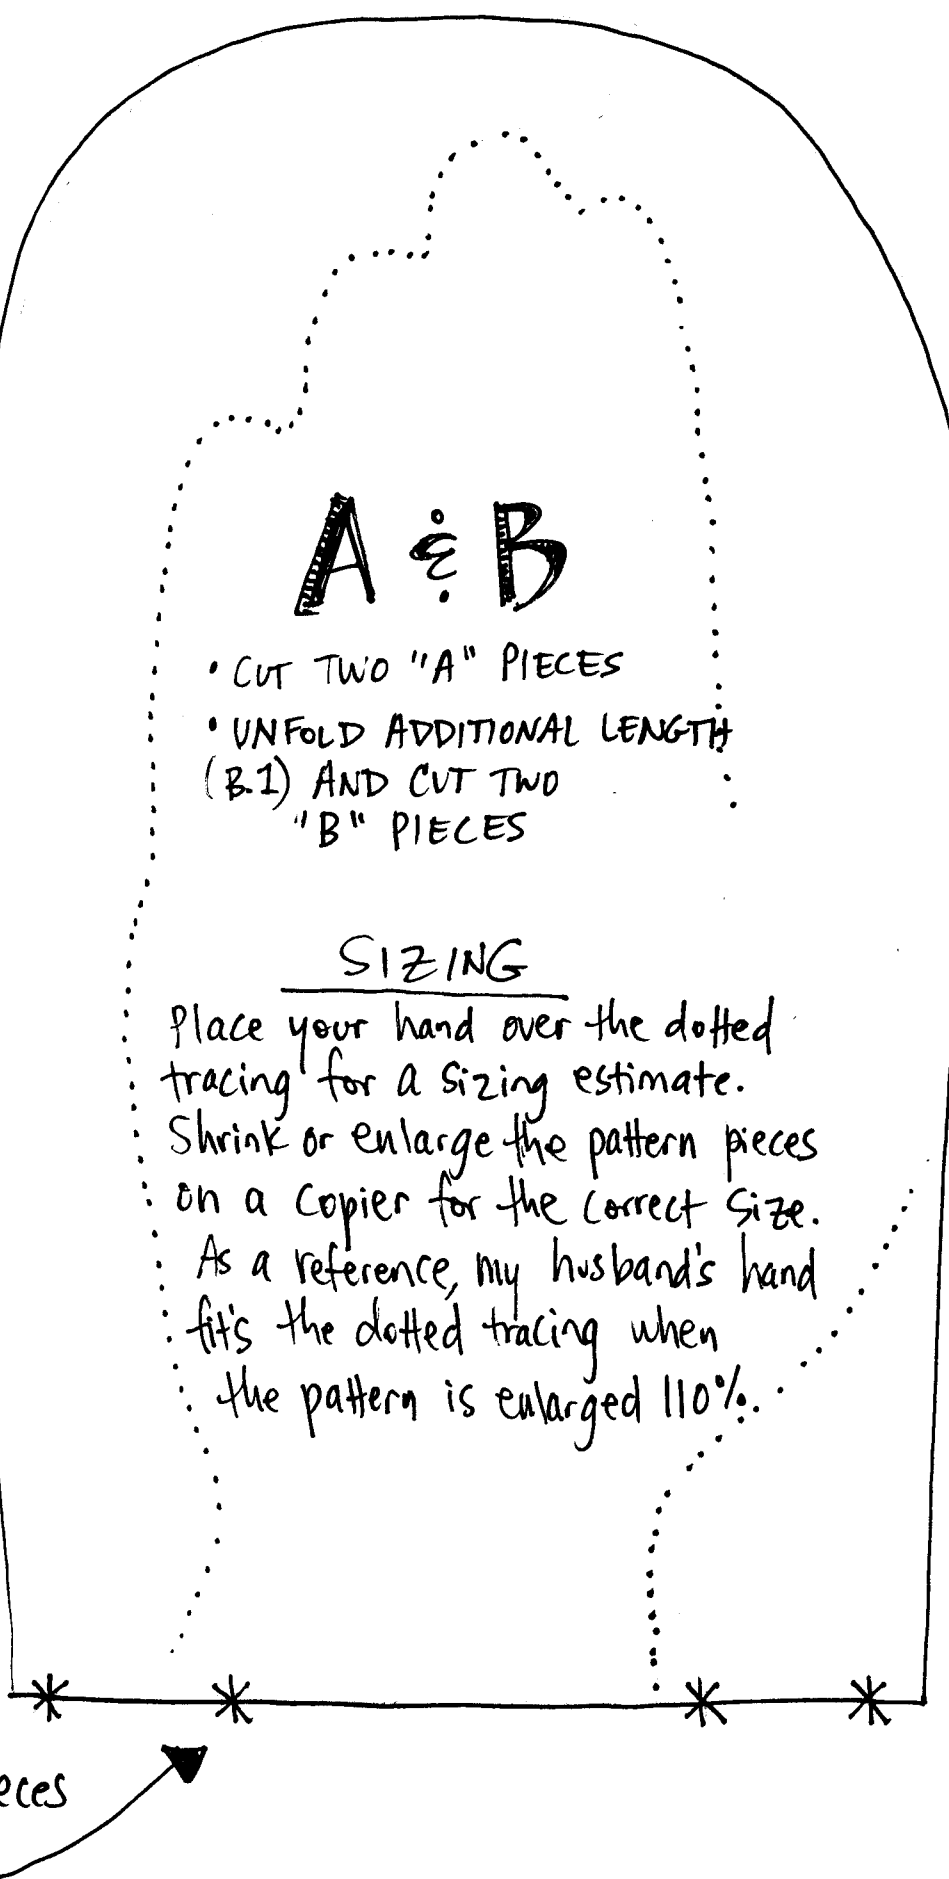 A & B
• CUT TWO "A" PIECES
• UNFOLD ADDITIONAL LENGTH
(B.1) AND CUT TWO
"B" PIECES
SIZING
Place your hand over the dotted
tracing for a sizing estimate.
Shrink or enlarge the pattern pieces
on a copier for the correct size.
As a reference, my husband's hand
fit's the dotted tracing when
the pattern is enlarged 110%.
eces